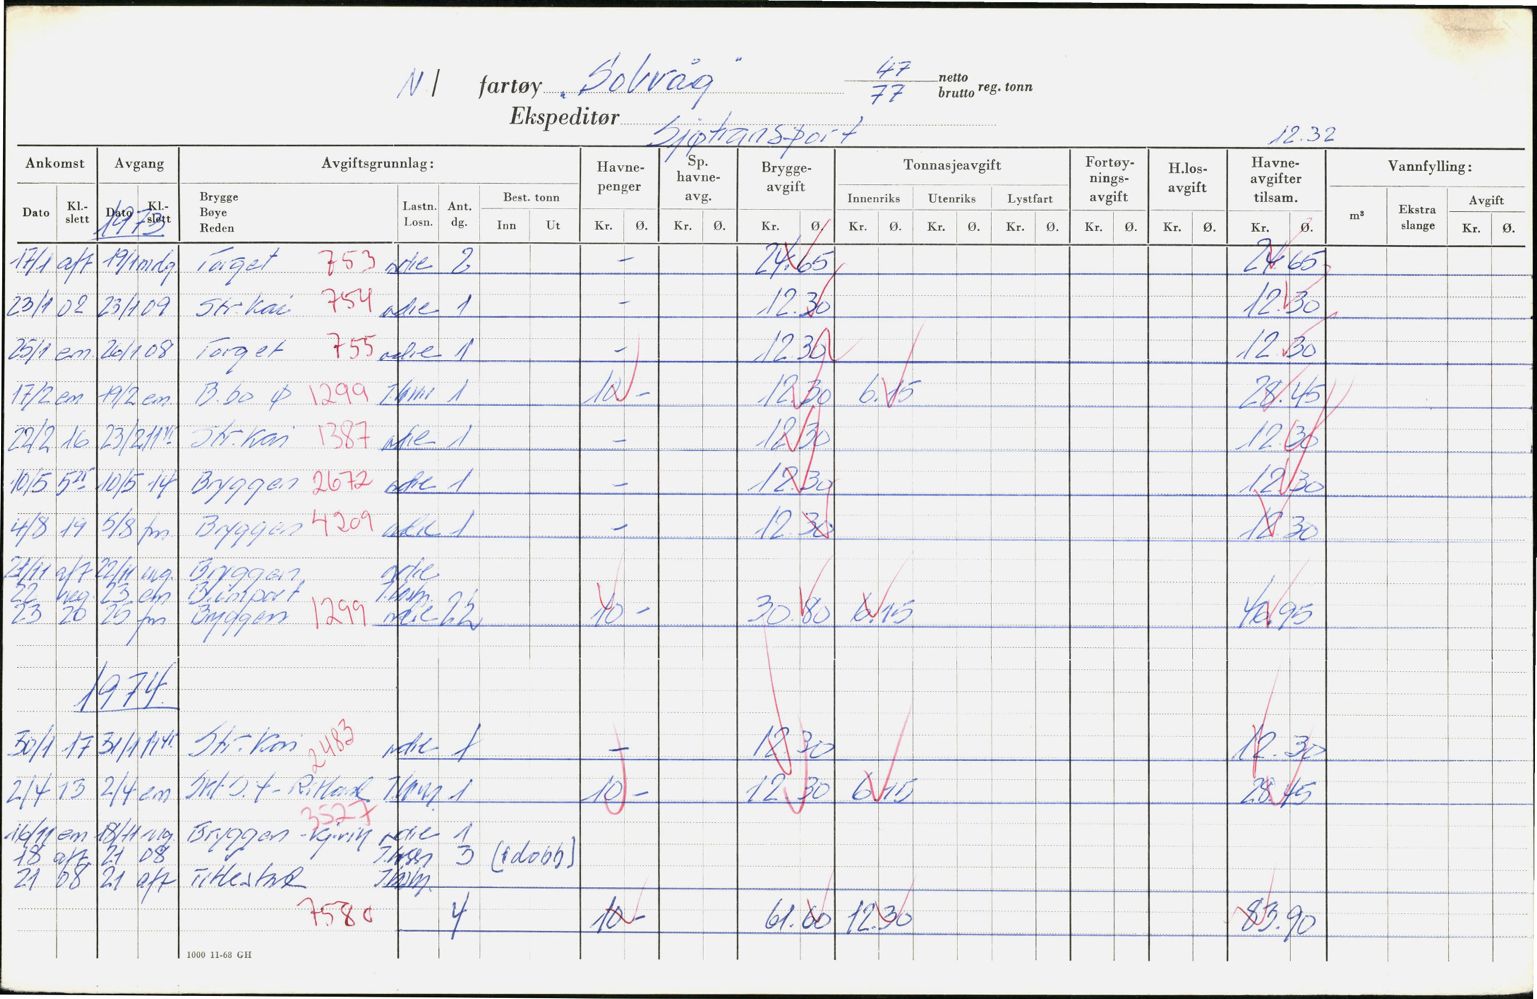 N/ fartøy „Solvåg" 47 netto
77 brutto reg. tonn
Ekspeditør Sjøtransport
12.32
Ankomst Avgang Avgiftsgrunnlag: Havne-penger Sp. havne-avg. Brygge-avgift Tonnasjeavgift Fortøy-nings-avgift H.los-avgift Havne-avgifter tilsam. Vannfylling:
Dato Kl.-slett Dato Kl.-slett Brygge Bøye Reden Lastn. Losn. Ant. dg. Best. tonn Innenriks Utenriks Lystfart m³ Ekstra slange Avgift
Inn Ut Kr. Ø. Kr. Ø. Kr. Ø. Kr. Ø. Kr. Ø. Kr. Ø. Kr. Ø. Kr. Ø. Kr. Ø. Kr. Ø.
1973
17/1 aft 19/1 mdg Torget 753 2 - 24.65 24.65
23/1 02 23/1 09 Str.kai 754 1 - 12.30 12.30
25/1 em 26/1 08 Torget 755 1 - 12.30 12.30
17/2 em 19/2 em B.bo 1299 1 10 - 12.30 6.15 28.45
22/2 16 23/2 11 Str.kai 1387 1 - 12.30 12.30
10/5 5 10/5 14 Bryggen 2672 1 - 12.30 12.30
4/8 19 5/8 fm Bryggen 4209 1 - 12.30 12.30
21/11 aft 22/11 mg. Bryggen
22 23 em B.import
23 20 25 fm Bryggen 1299 2½ 10 - 30.80 6.15 46.95
1974
30/1 17 31/1 11 Str.kai 2483 1 - 12.30 12.30
2/4 13 2/4 em 3527 1 10 - 12.30 6.15 28.45
16/11 em 18/11 mg Bryggen 1
18 aft 21 08 3
21 08 21 aft
7580 4 10 - 61.60 12.30 83.90
1000 11-68 GH